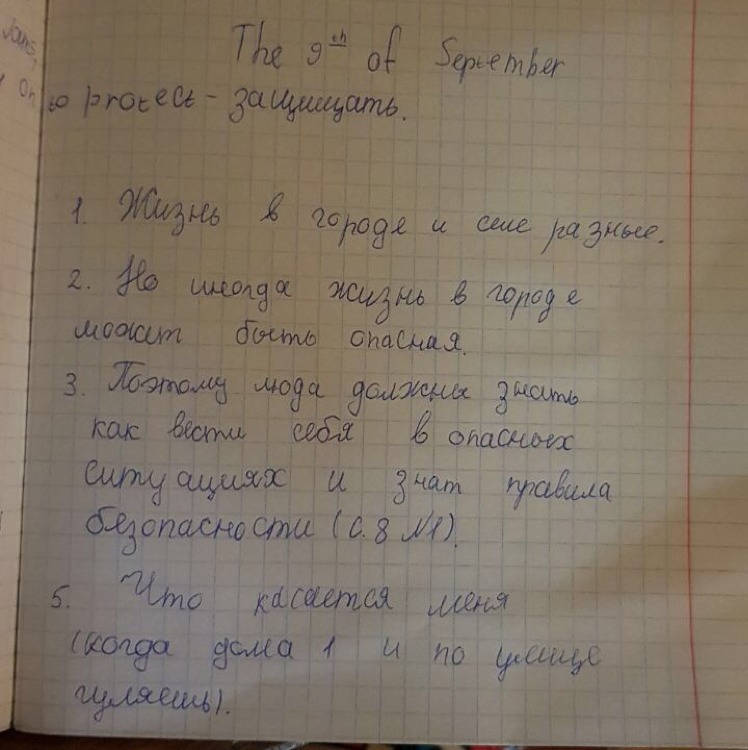 The 9th of September
to protect - защищать.
1. Жизнь в городе и селе разные.
2. Но иногда жизнь в городе
может быть опасная.
3. Поэтому люда должны знать
как вести себя в опасных
ситуациях и знат правила
безопасности (с. 8 №1).
5. Что касается меня
(когда дома 1 и по улице
гуляешь).